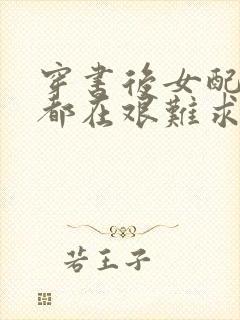 穿書後女配
都在艱難求
若王子